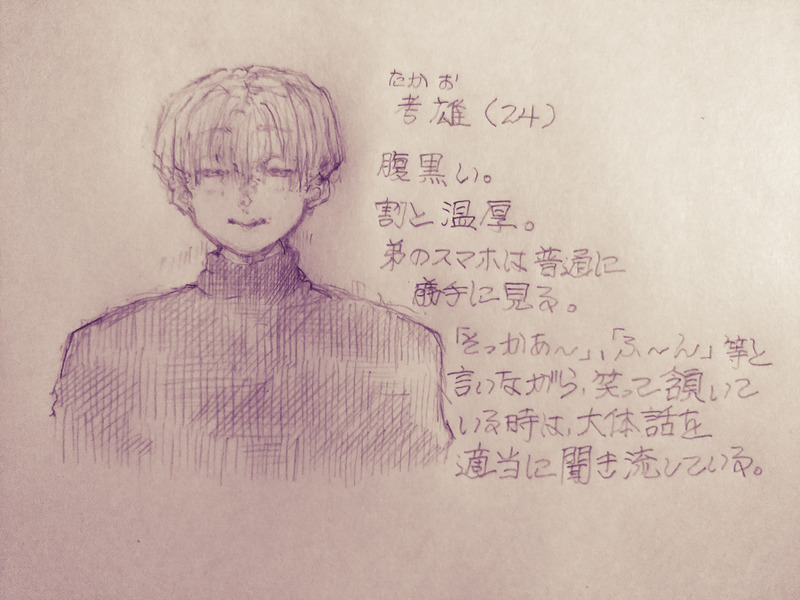 たかお
考雄（24）
腹黒い。
割と温厚。
弟のスマホは普通に
勝手に見る。
「そっかあ〜」、「ふ〜ん」等と
言いながら、笑って頷いて
いる時は、大体話を
適当に聞き流している。